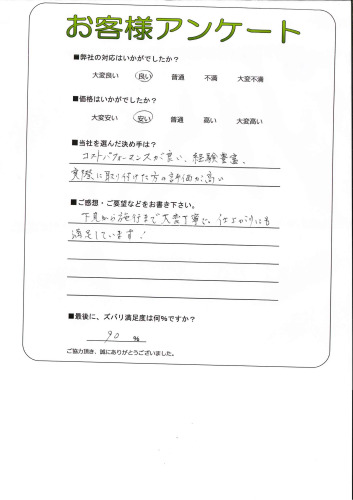 お客様アンケート
■弊社の対応はいかがでしたか？
大変良い　良い　普通　不満　大変不満
■価格はいかがでしたか？
大変安い　安い　普通　高い　大変高い
■当社を選んだ決め手は？
コストパフォーマンスが良い、経験豊富、
実際に取り付けた方の評価が高い
■ご感想・ご要望などをお書き下さい。
下見から施行まで大変丁寧で。仕上がりにも
満足しています！
■最後に、ズバリ満足度は何％ですか？
90 %
ご協力頂き、誠にありがとうございました。